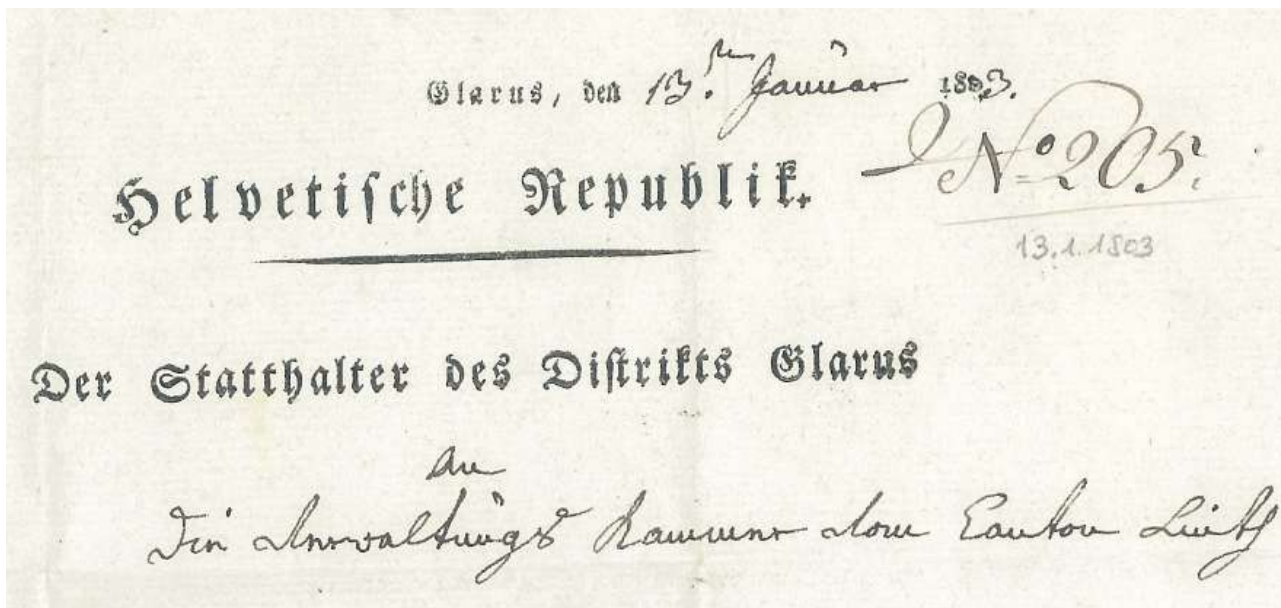 Glarus, den 13.ten Januar 1803.
No 205.
Helvetische Republik.
13.1.1803
Der Statthalter des Distrikts Glarus
An
Die Verwaltungs Kammer vom Canton Linth